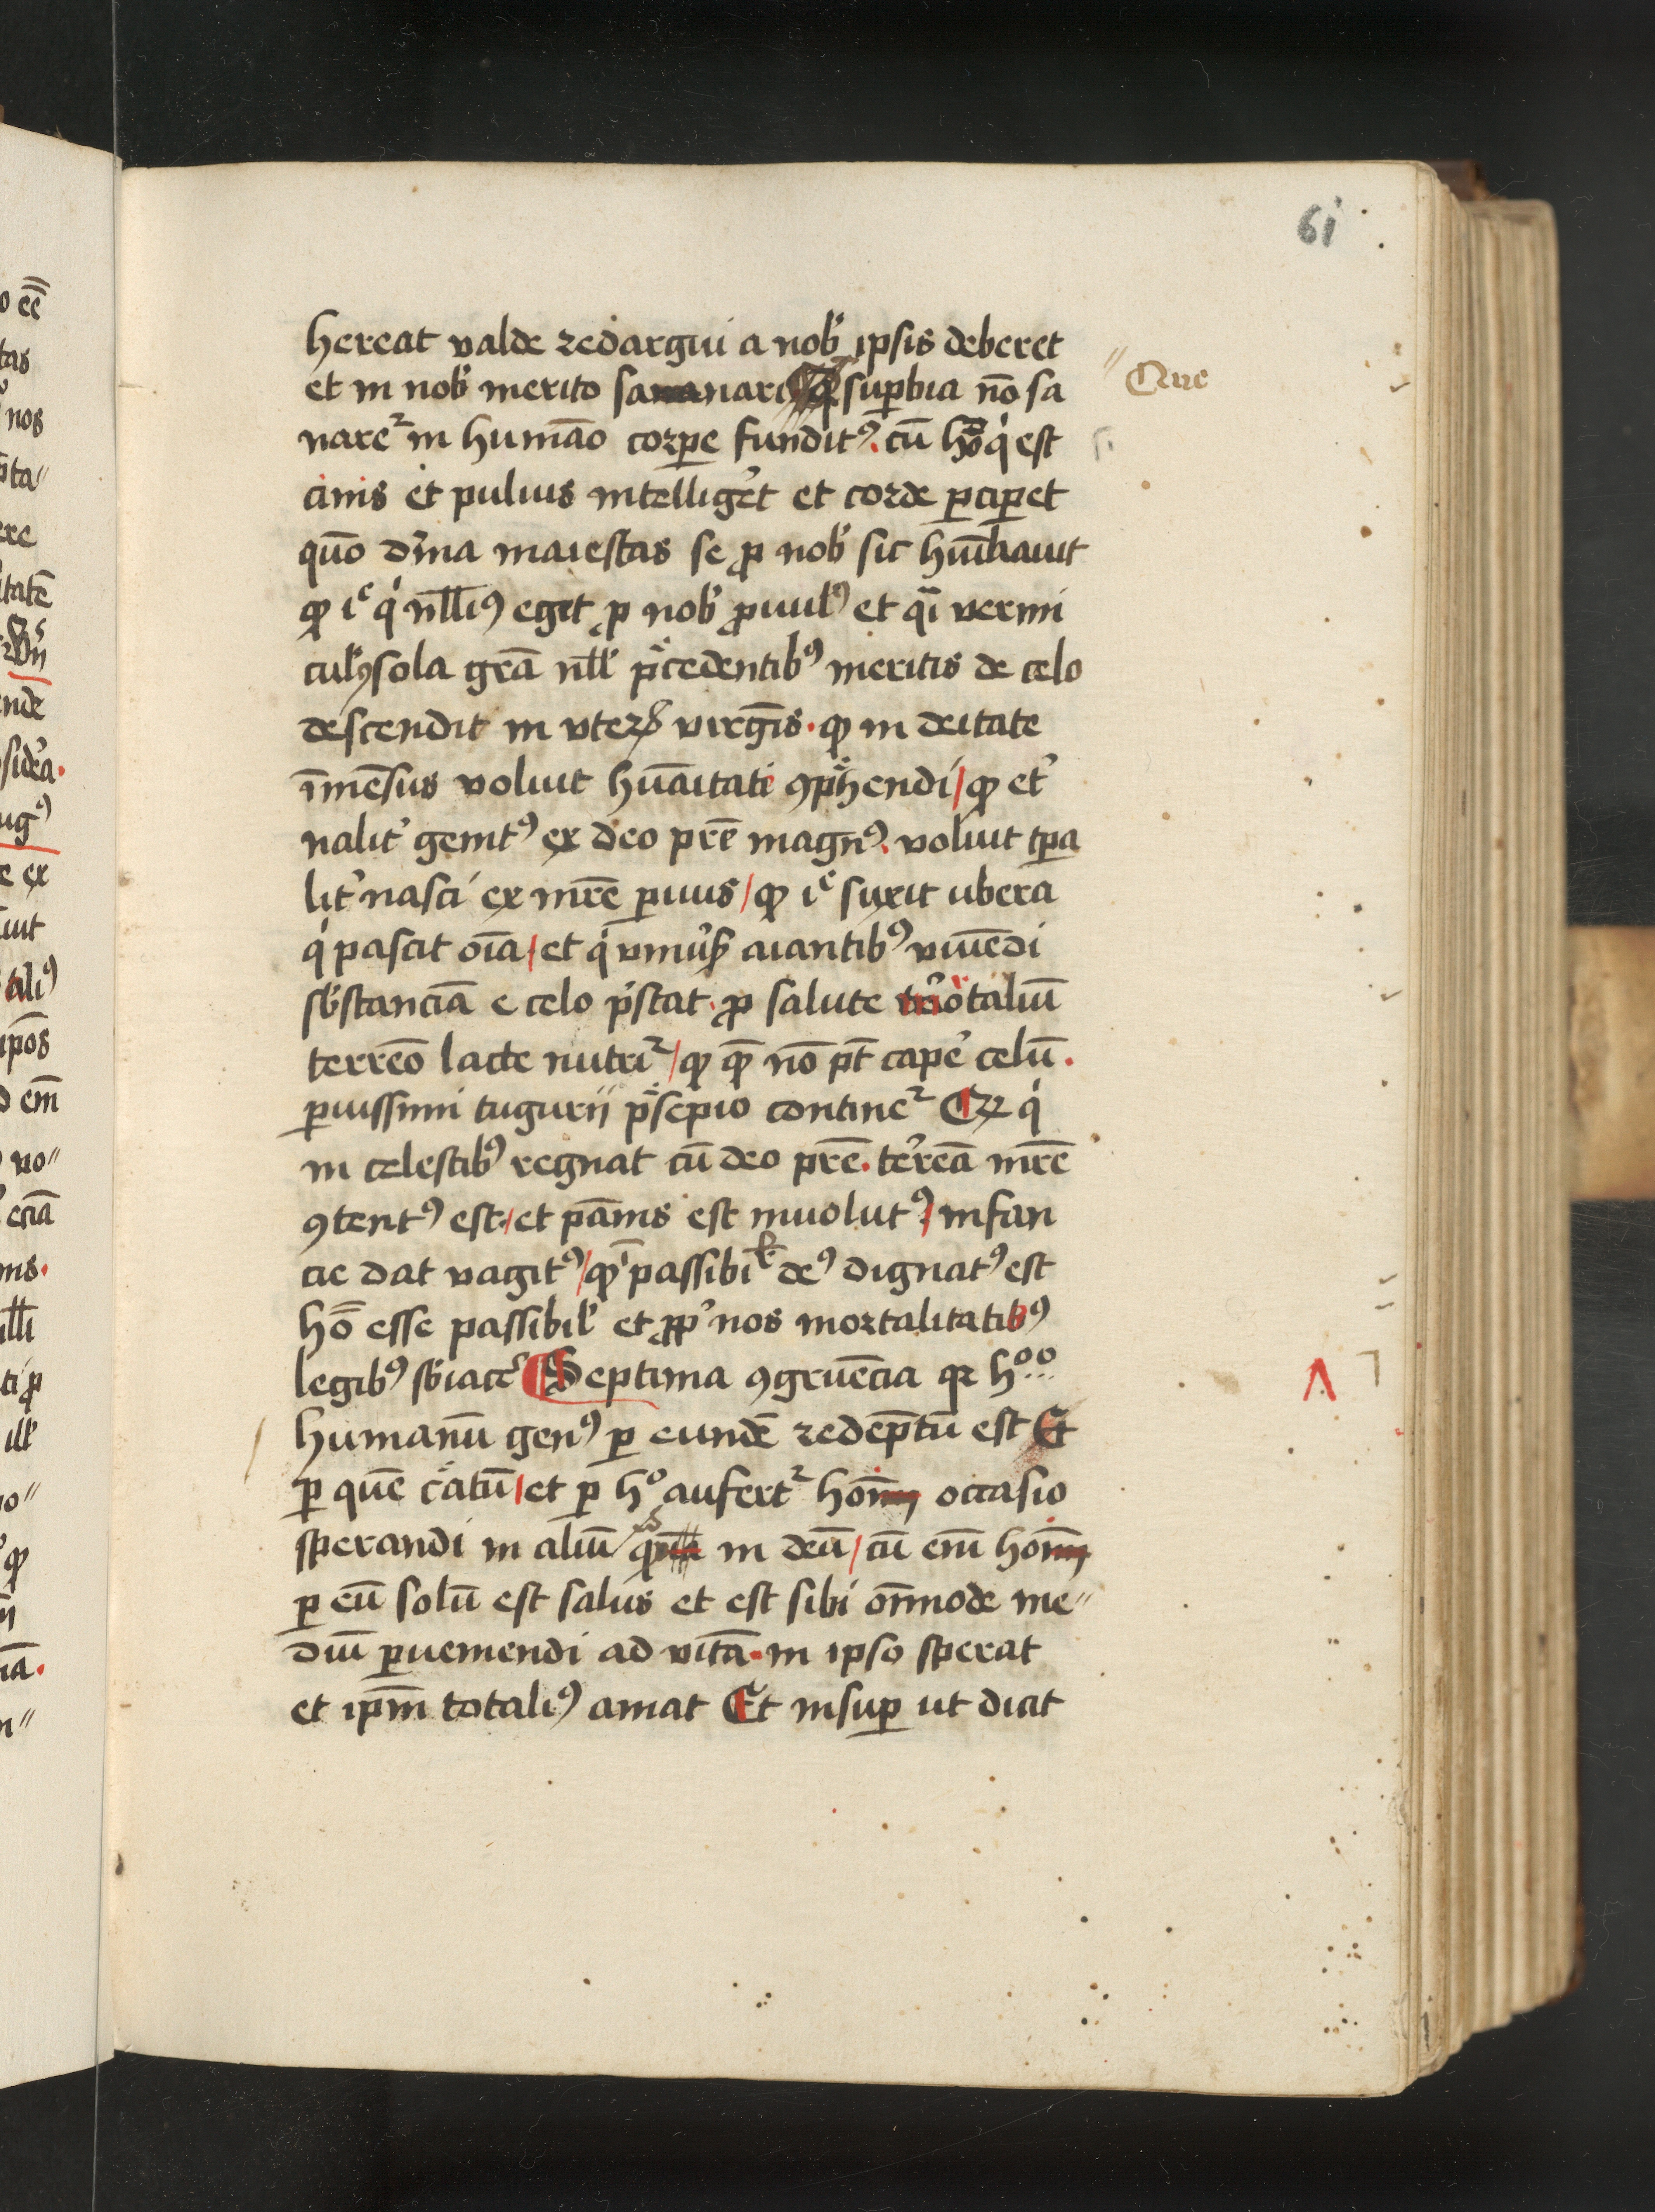 61
hereat valde redargui a nob̛ ipsis deberet
et in nob̛ merito sananari suꝑbia nō sa
nareᷣ in humāo corꝑe funditꝰ. cū hō qͥ est
cinis et puluis intelligēt et corde ꝑciꝑet
quō dīna maiestas se ꝓ nob̛ sic hūiliauit
ꝙ iᵉ qͥ nllīꝰ eget ꝓ nob̛ ꝓuulꝰ et qͣi vermi
culꝰ sola grā nll̛ p̄cedentibꝰ meritis de celo
descendit in vteꝝ virgīs. ꝙ in deitate
īmēsus voluit hūaitati ꝯp̄hendi / ꝙ et̛
nalit̛ genitꝰ ex deo prē magnꝰ. voluit tꝑa
lit̛ nasci ex mrē ꝑuus / ꝙ iᵉ suxit ubera
qͥ pascit oīa / et qͥ vniưs aīantibꝰ viuēdi
sb̛stanciā e celo p̄stat. ꝓ salute mōtaliū
terreō lacte nutriᷣ / ꝙ qē nō pt̄ cape̛ celū.
ꝑuissimi tugurii p̄sepio contineᷣ Et qͥ
in celestibꝰ regnat cū deo prē. te̛reā mrē
ꝯtentꝰ est. / et pānis est inuolutꝰ / infan
cie dat vagitꝰ / ꝙ īpassibil̛ deꝰ dignatꝰ est
hō esse passibil̛ et ꝓp̛ nos mortalitatibꝰ
legibꝰ sb̛iace̛ Septima ꝯgruēcia qꝛ hᵒᵒ
humanū genꝰ ꝑ eundē redēptū est Et
ꝑ quē c̄atū / et ꝑ hᵒ aufertᷣ hōni occasio
sperandi in aliū qͣ in deū / cū em̄ hōni
ꝑ eū solū est salus et est sibi om̄mode me〃
diū ꝑueniendi ad vitā. in ipso sperat
et ipm̄ totaliꝰ amat Et insuꝑ ut dicit
〃 Que